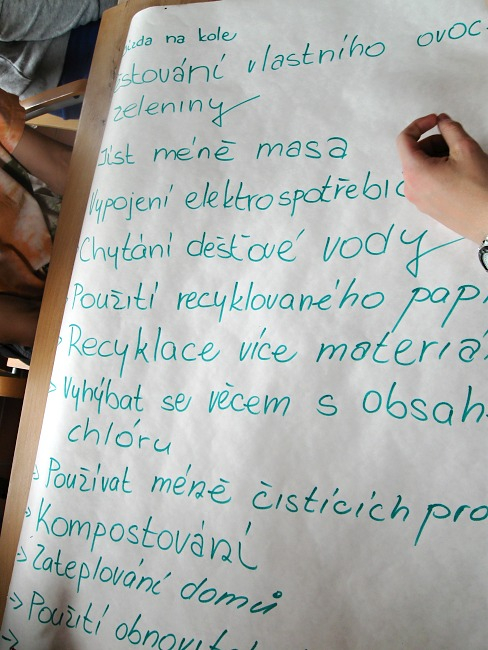 jízda na kole
stování vlastního ovoc
zeleniny
Jíst méně masa
Vypojení elektrospotřebič
Chytání dešťové vody
Použití recyklovaného pap
Recyklace více materiá
> Vyhýbat se věcem s obsah
chlóru
> Používat méně čistících pro
> Kompostování
→ Zateplování domů
→ Použití obnovitel